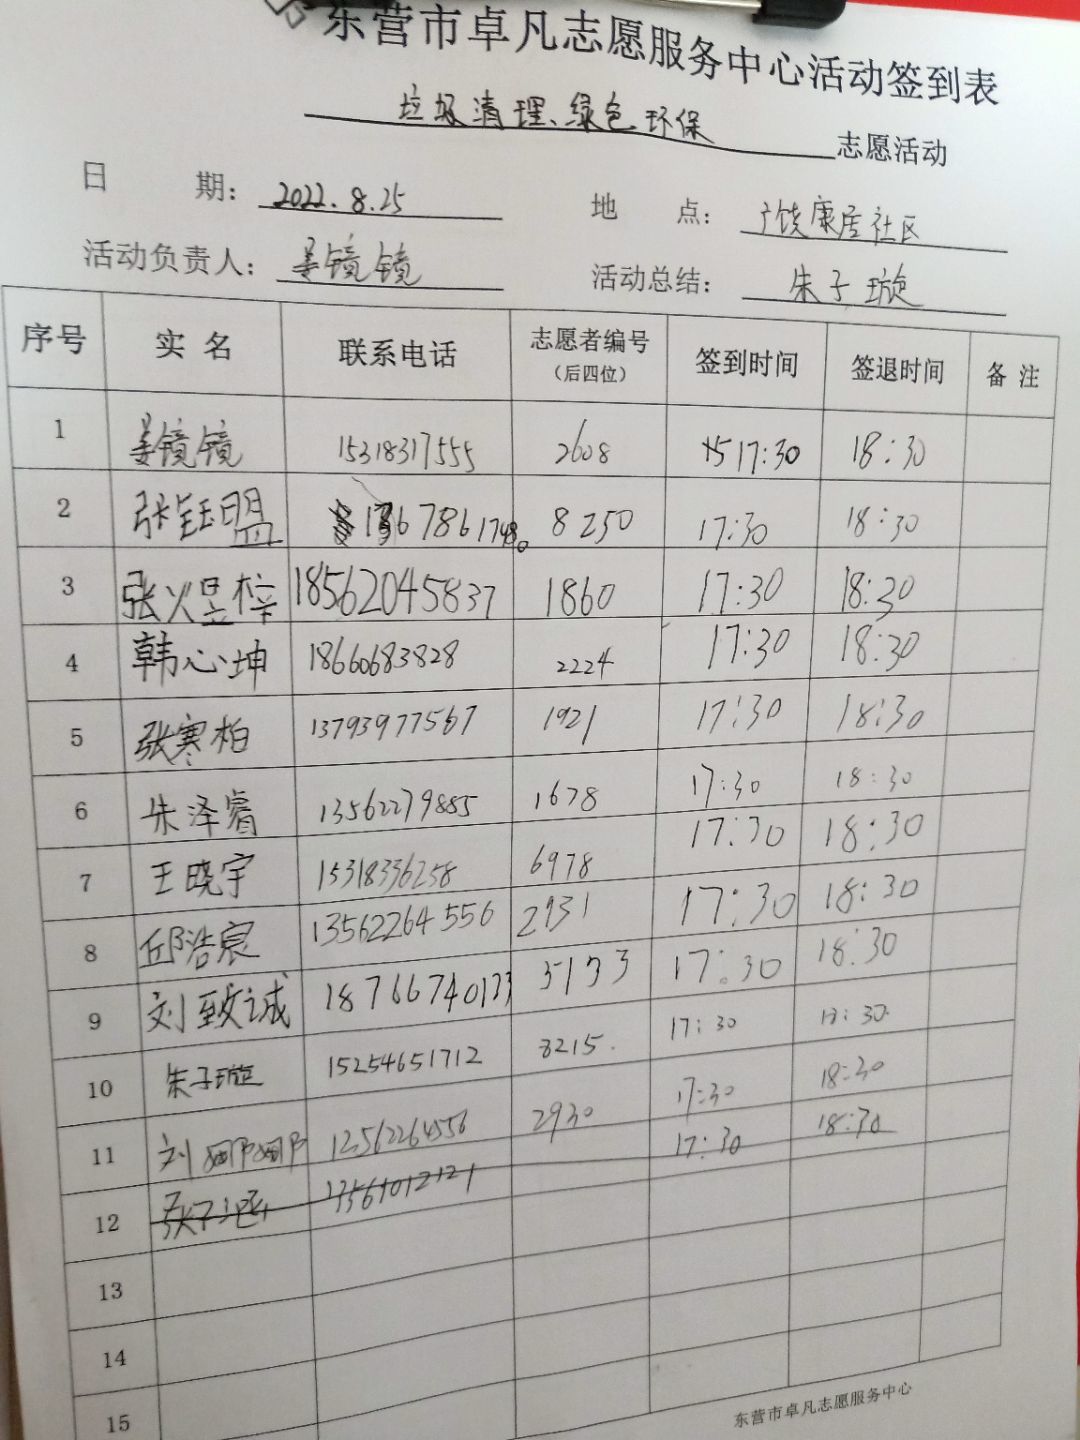 东营市卓凡志愿服务中心活动签到表
垃圾清理、绿色环保 志愿活动
日 期： 2022.8.25 地 点： 广饶康居社区
活动负责人： 姜镜镜 活动总结： 朱子璇
序号 实 名 联系电话 志愿者编号（后四位） 签到时间 签退时间 备 注
1 姜镜镜 15318317555 2608 17:30 18:30
2 张钰盟 8250 17:30 18:30
3 张煜梓 18562045837 1860 17:30 18:30
4 韩心坤 18660683828 2224 17:30 18:30
5 张寒柏 13793977567 1921 17:30 18:30
6 朱泽睿 13562279885 1678 17:30 18:30
7 王晓宇 15318336258 6978 17:30 18:30
8 邱浩宸 13562264556 2931 17:30 18:30
9 刘致诚 18766740133 17:30 18:30
10 朱子璇 15254651712 8215. 17:30 18:30
11 刘娜娜 2930 17:30 18:30
12 17:30 18:30
13
14
15
东营市卓凡志愿服务中心